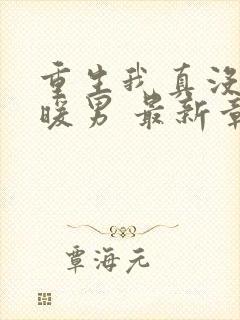 重生我真没
暖男 最新章
覃海元